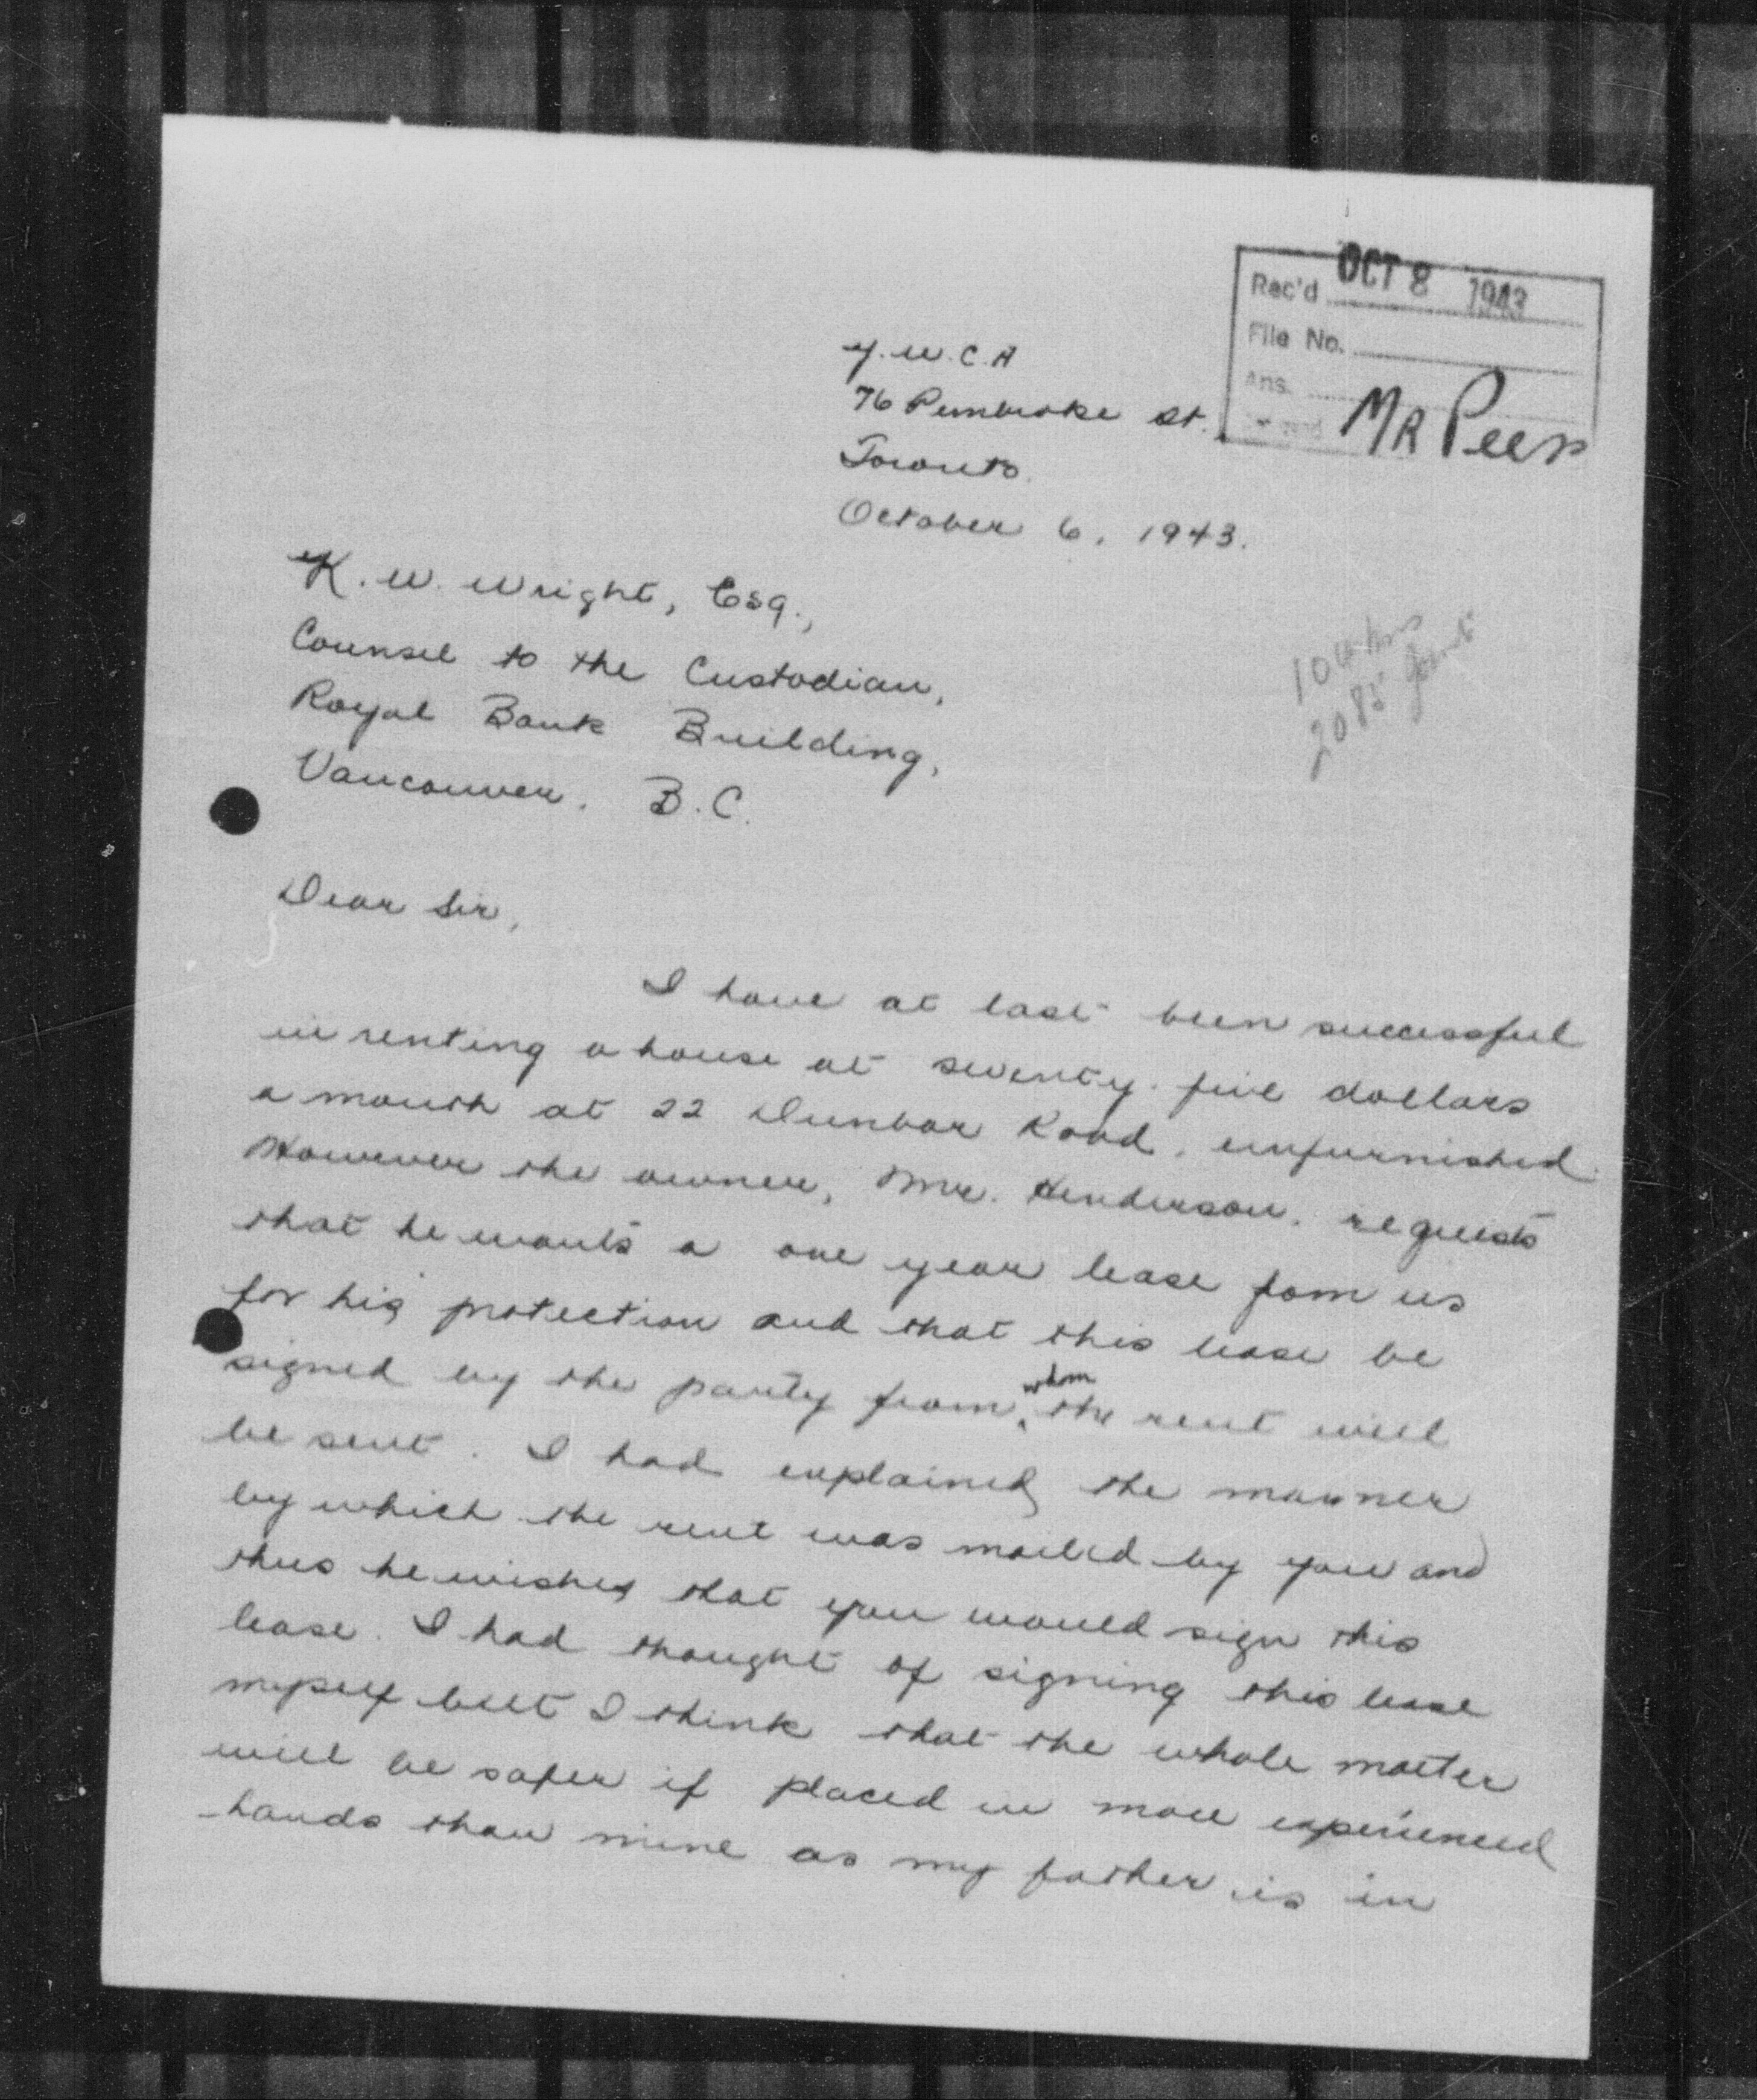 Rec'd OCT 8 1943
File No.
Ans.
MR Peers
Y.W.C.A
76 Pembroke St.
Toronto.
October 6, 1943.
K. W. Wright, Esq.,
Counsel to the Custodian,
Royal Bank Building,
Vancouver, B.C.
2085
Dear Sir,
I have at last been successful
in renting a house at seventy-five dollars
a month at 22 Dunbar Road, unfurnished.
However the owner, Mr. Henderson, requests
that he wants a one year lease fom us
for his protection and that this lease be
signed by the party from whom the rent will
be sent. I had explained the manner
by which the rent was mailed by you and
thus he wishes that you would sign this
lease. I had thought of signing this lease
myself but I think that the whole matter
will be safer if placed in more experienced
hands than mine as my father is in